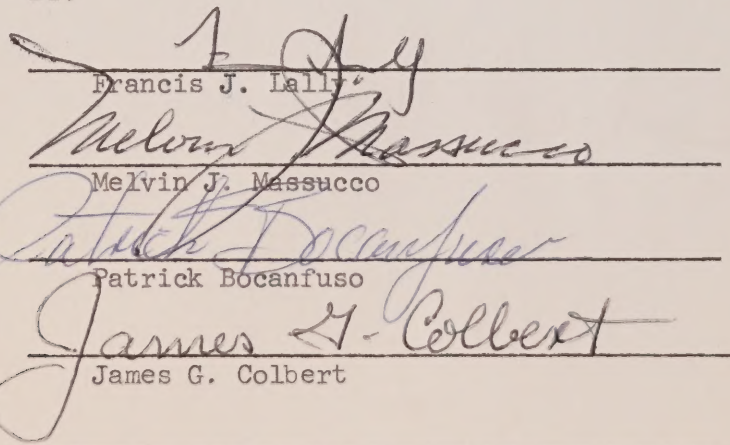 Francis J. Lally
Melvin J. Massucco
Melvin J. Massucco
Patrick Bocanfuso
Patrick Bocanfuso
James G. Colbert
James G. Colbert